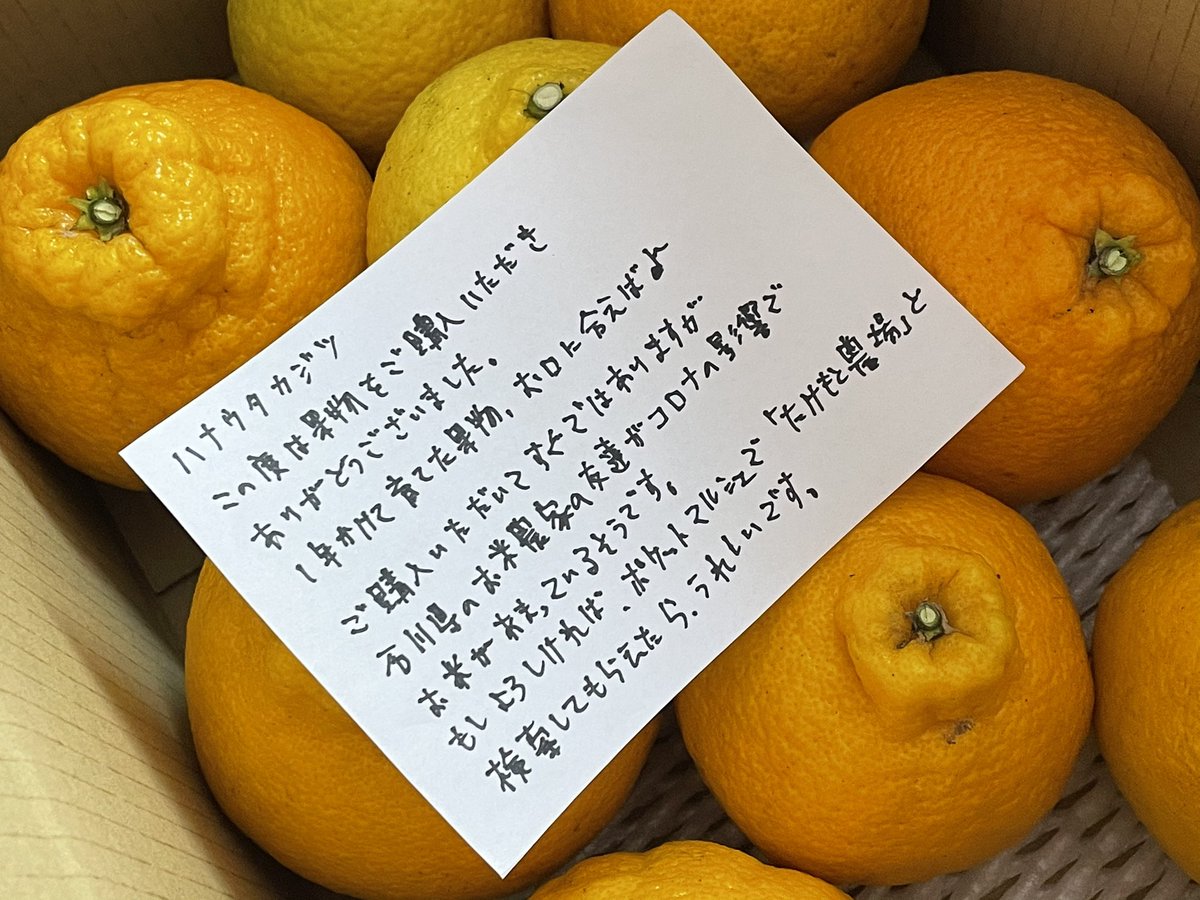 ハナウタカジツ
この度は果物をご購入いただき
ありがとうございました。
1年かけて育てた果物、お口に合えば♪
ご購入いただいてすぐではありますが
石川県のお米農家の友達がコロナの影響で
お米が余っているそうです。
もしよろしければ、ポケットマルシェで「たけもと農場」と
検索してもらえたら、うれしいです。